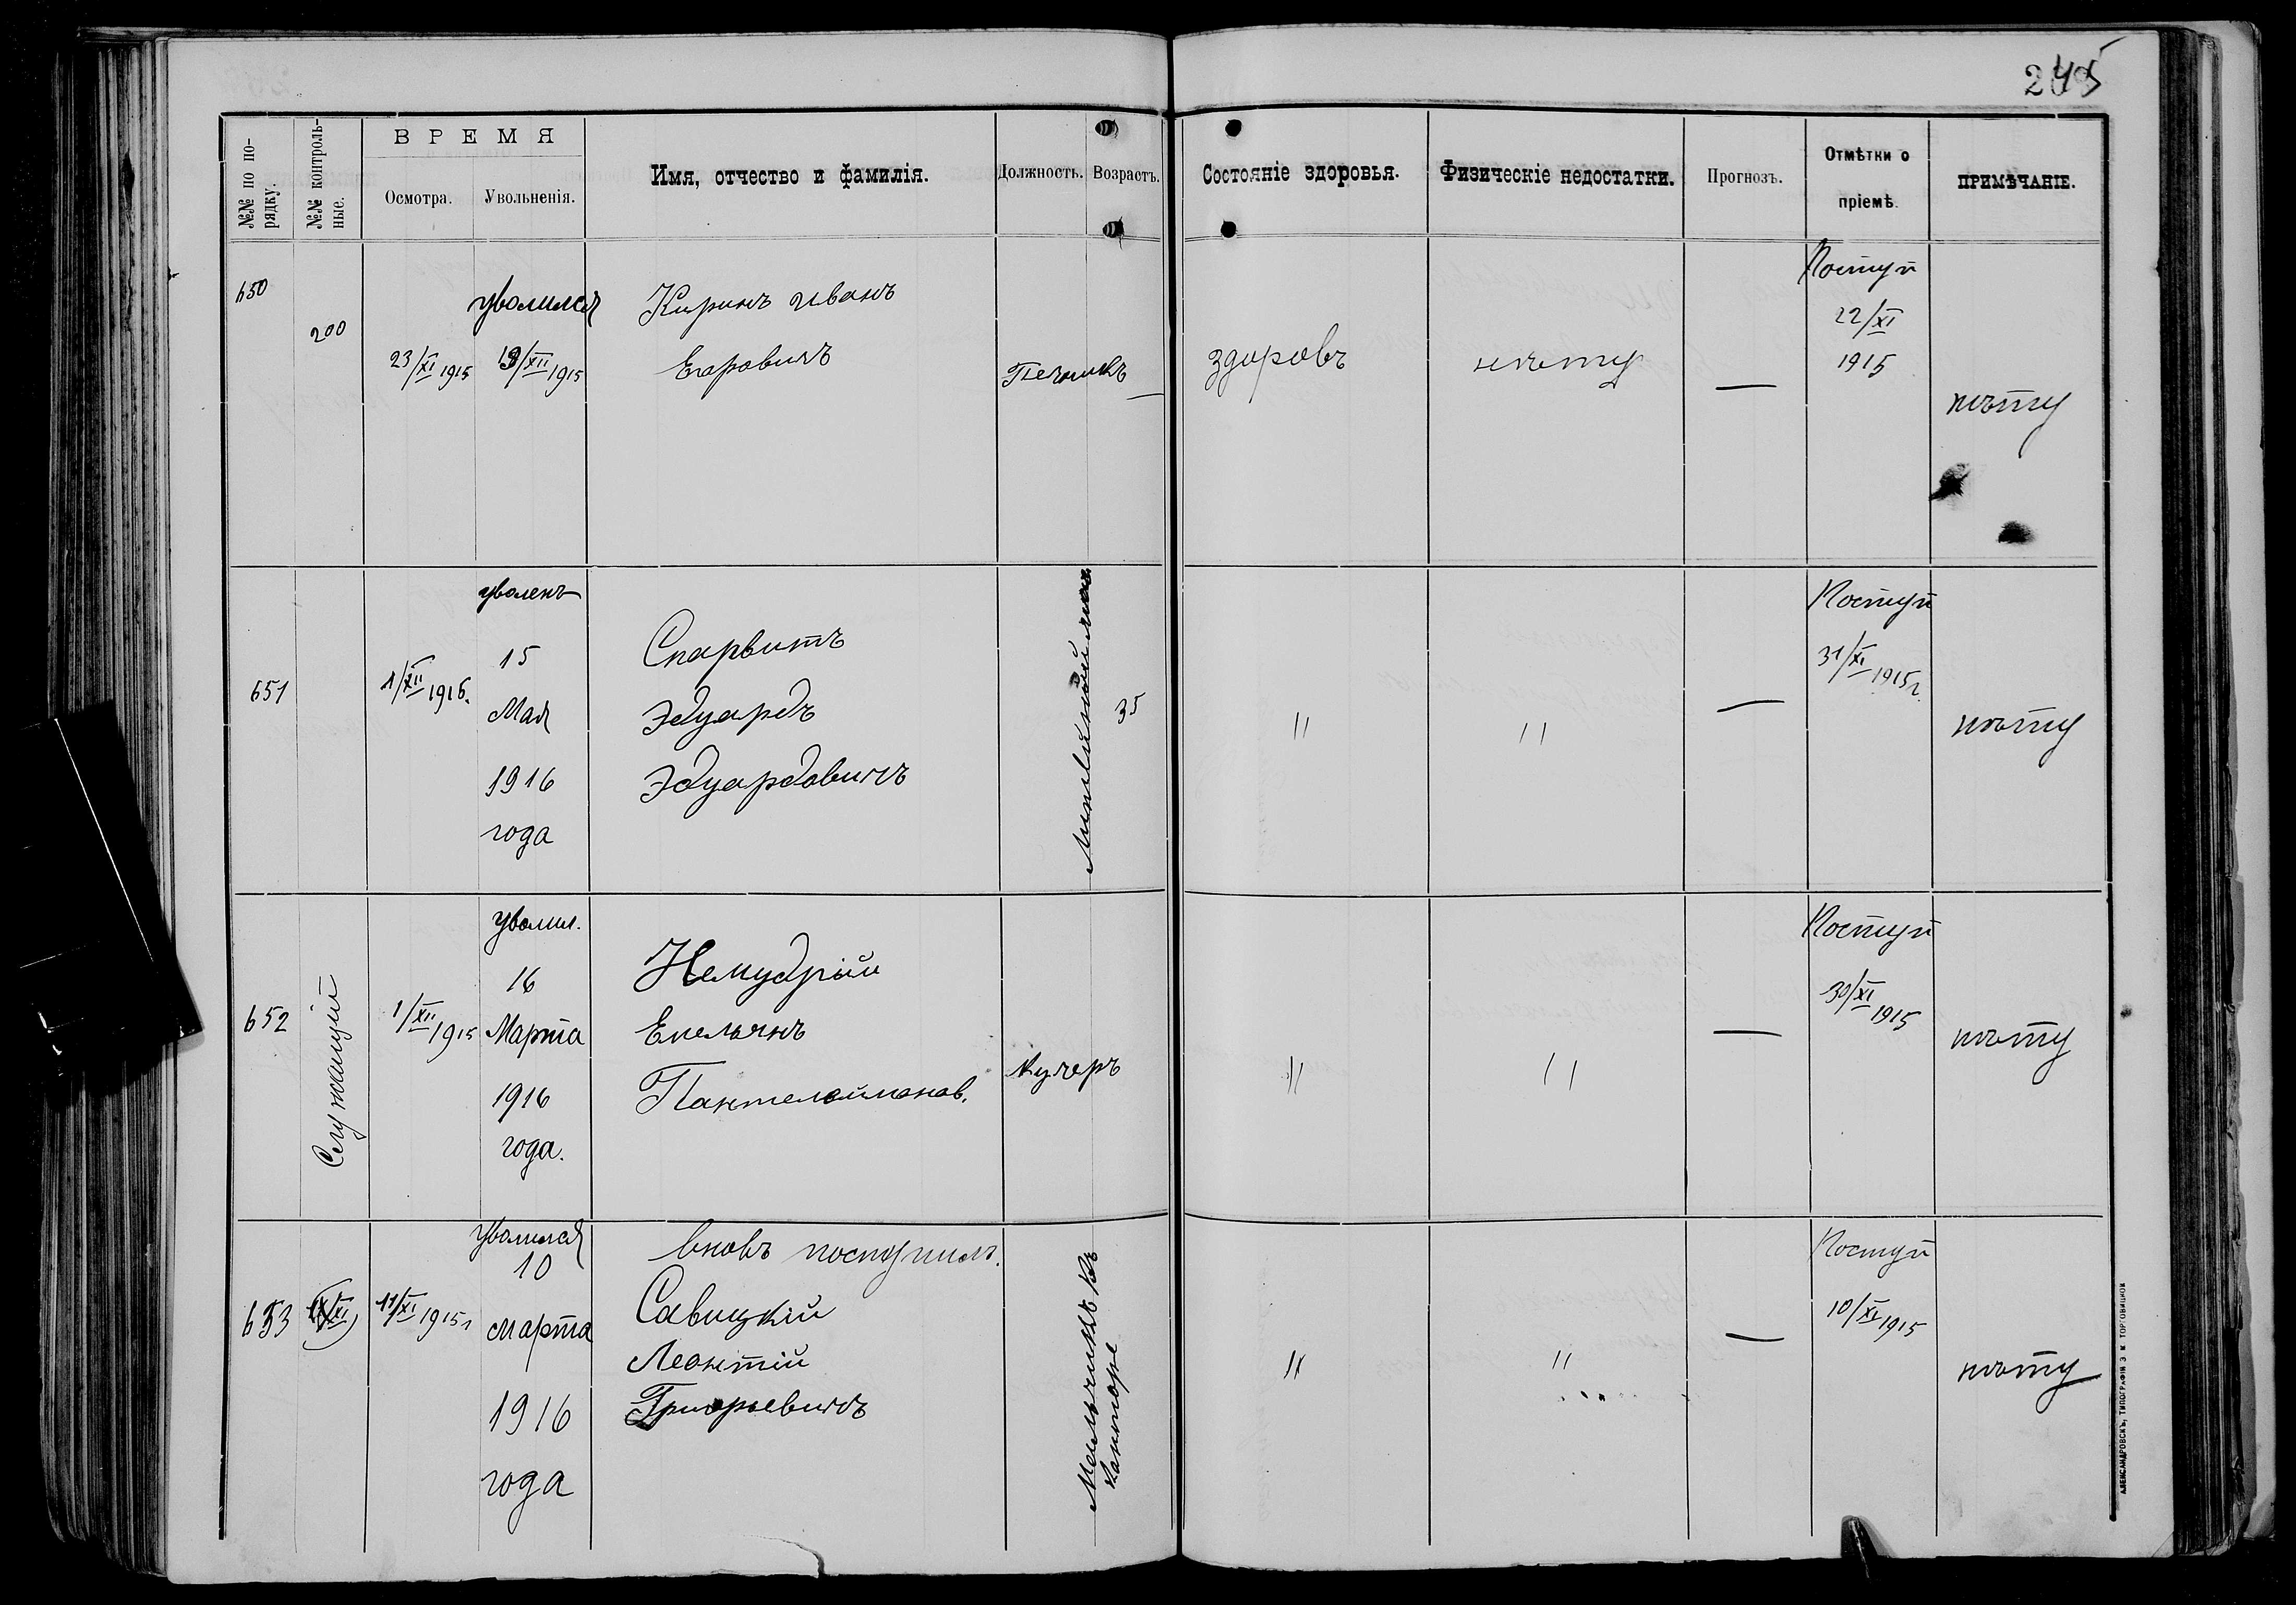 245
№№ по по-
рядку.
№№ контроль-
ные.
ВРЕМЯ
Осмотра.
Увольненія.
Имя, отчество и фамилія.
Должность.
Возрастъ.
Состояніе здоровья.
Физическіе недостатки.
Прогнозъ.
Отмѣтки о
пріемѣ.
ПРИМѢЧАНІЕ.
650
200
23/XI 1915
уволился
19/XII 1915
Киринъ Иванъ
Егоровичъ
Печникъ
—
здоровъ
нѣту
—
Поступ
22/XI
1915
нѣту
651
1/XII 1915.
уволенъ
15
Мая
1916
года
Спарвитъ
Эдуардъ
Эдуардовичъ
35
"
"
—
Поступ
31/XI 1915 г.
нѣту
652
Служащій
1/XII 1915
уволил.
16
Марта
1916
года.
Немудрій
Емельянъ
Пантелеймонов.
Кучеръ
"
"
—
Поступ
30/XI 1915
нѣту
653
11/XI 1915 г
уволился
10
марта
1916
года
вновь поступилъ.
Савицкій
Леонтій
Григорьевичъ
Мальчикъ въ
конторе
"
"
—
Поступ
10/XI 1915
нѣту
АЛЕКСАНДРОВСКЪ, ТИПОГРАФІЯ Э. И. ТОРГОВИЦКОЙ